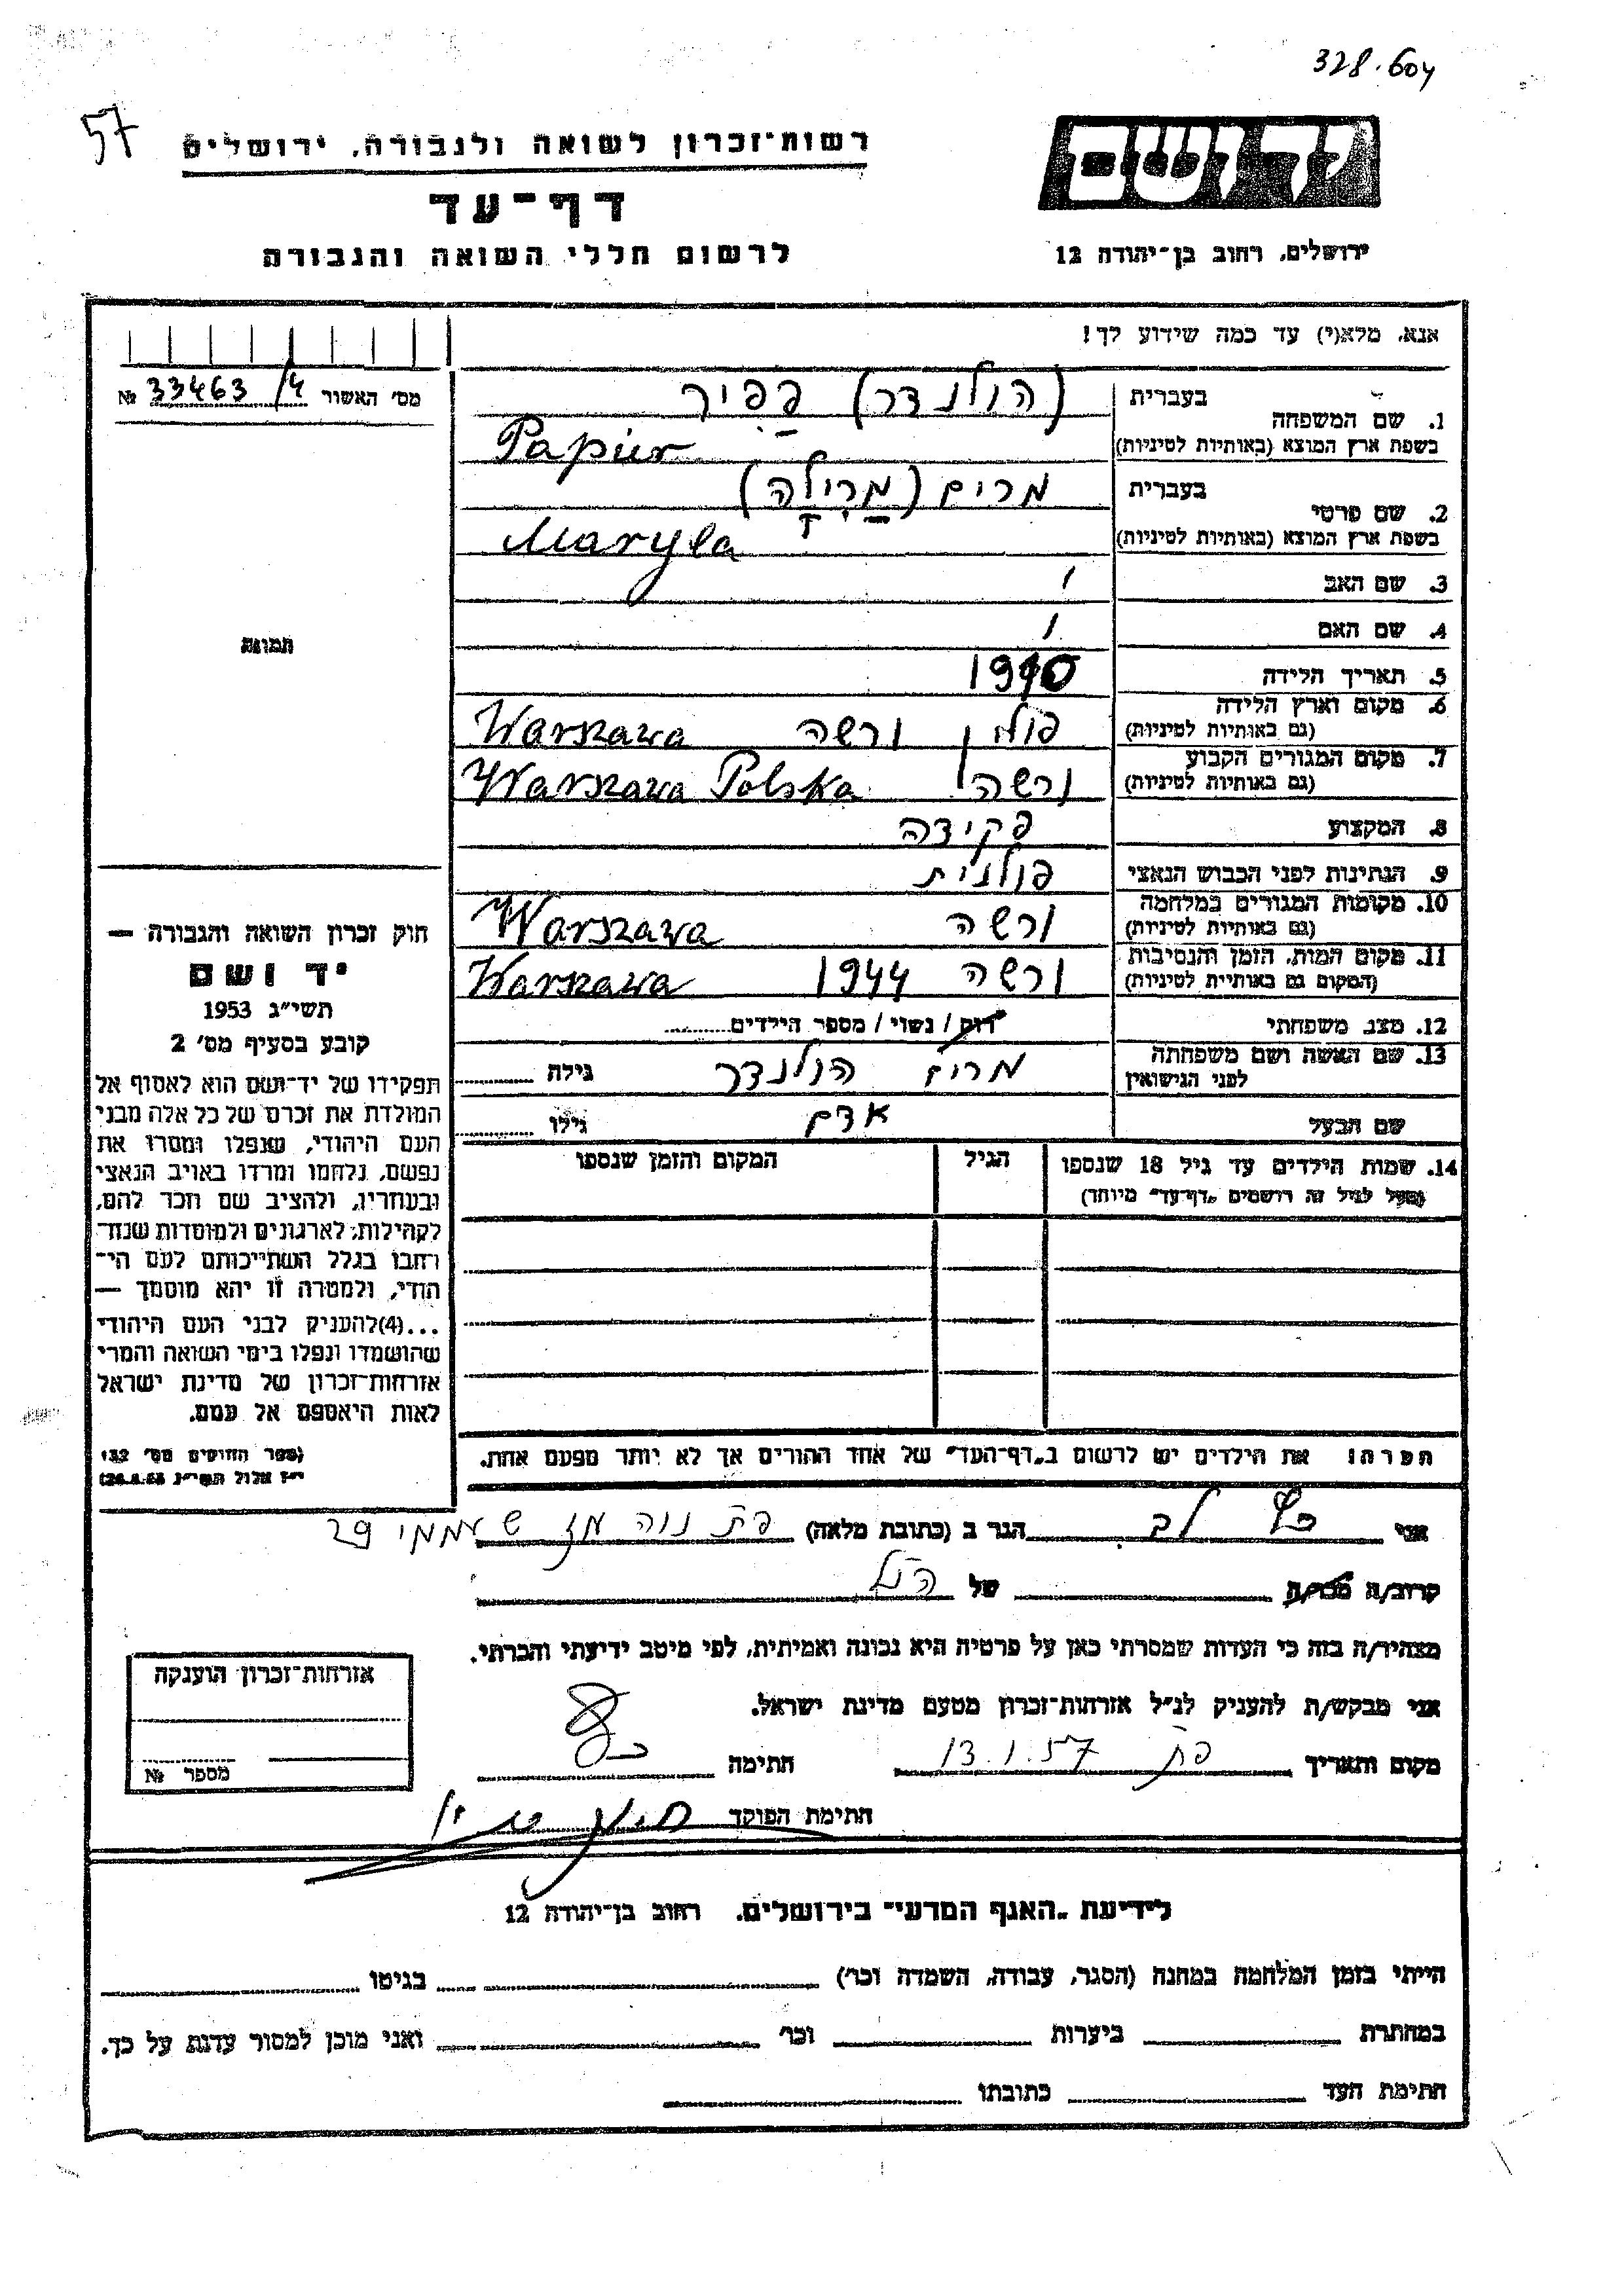 328.604
57
יד ושם
רשות־זכרון לשואה ולגבורה, ירושלים
דף־עד
לרשום חללי השואה והגבורה
ירושלים, רחוב בן־יהודה 12
אנא, מלא(י) עד כמה שידוע לך!
מס' האשור 33463/4 №
תמונה
1. שם המשפחה
בעברית (הולנדר) פפיר
בשפת ארץ המוצא (באותיות לטיניות) Papier
2. שם פרטי
בעברית מרים (מרילה)
בשפת ארץ המוצא (באותיות לטיניות) Maryla
3. שם האב /
4. שם האם /
5. תאריך הלידה 1910
6. מקום וארץ הלידה (גם באותיות לטיניות) פולין ורשה Warszawa
7. מקום המגורים הקבוע (גם באותיות לטיניות) ורשה Warszawa Polska
8. המקצוע פקידה
9. הנתינות לפני הכבוש הנאצי פולנית
10. מקומות המגורים במלחמה (גם באותיות לטיניות) ורשה Warszawa
11. מקום המות, הזמן והנסיבות (המקום גם באותיות לטיניות) ורשה 1944 Warszawa
12. מצב משפחתי רווק / נשוי / מספר הילדים
13. שם האשה ושם משפחתה לפני הנישואין מרים הולנדר גילה
שם הבעל אדם גילו
14. שמות הילדים עד גיל 18 שנספו הגיל המקום והזמן שנספו
(מעל לגיל זה רושמים "דף־עד" מיוחד)
חוק זכרון השואה והגבורה —
יד ושם
תשי"ג 1953
קובע בסעיף מס' 2
תפקידו של יד־ושם הוא לאסוף אל
המולדת את זכרם של כל אלה מבני
העם היהודי, שנפלו ומסרו את
נפשם, נלחמו ומרדו באויב הנאצי
ובעוזריו, ולהציב שם וזכר להם,
לקהילות, לארגונים ולמוסדות שנח־
רבו בגלל השתייכותם לעם הי־
הודי, ולמטרה זו יהא מוסמך —
...(4) להעניק לבני העם היהודי
שהושמדו ונפלו בימי השואה והמרי
אזרחות־זכרון של מדינת ישראל
לאות היאספם אל עמם.
(ספר החוקים מס' 132
י"ז אלול תשי"ג 28.8.53)
הערה: את הילדים יש לרשום ב"דף־העד" של אחד ההורים אך לא יותר מפעם אחת.
אני כץ לב הגר ב (כתובת מלאה) פת נוה שממי 29
קרוב/ה מכר/ה של הנ"ל
מצהיר/ה בזה כי העדות שמסרתי כאן על פרטיה היא נכונה ואמיתית, לפי מיטב ידיעתי והכרתי.
אני מבקש/ת להעניק לנ"ל אזרחות־זכרון מטעם מדינת ישראל.
מקום ותאריך פת 13.1.57 חתימה
חתימת הפוקד
אזרחות־זכרון הוענקה
מספר №
לידיעת "האגף המדעי" בירושלים, רחוב בן־יהודה 12
הייתי בזמן המלחמה במחנה (הסגר, עבודה, השמדה וכו') בגיטו
במחתרת ביערות וכו' ואני מוכן למסור עדות על כך.
חתימת העד כתובתו